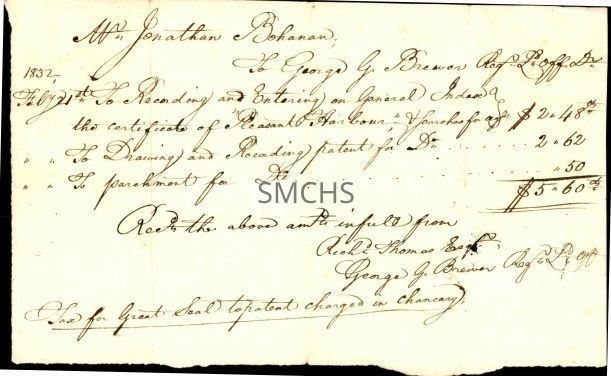 Mr. Jonathan Bohanan,
To George G. Brewer Regr. Ld. Off. Dr.
1832,
Feby 21st To Recording and Entering on General Index
the certificate of "Pleasant Harbour," & searches for $ 2 " 48
" " To Drawing and Recording patent for Do. 2 " 62
" " To parchment for Do. " 50
$ 5 " 60
SMCHS
Recd. the above amt. in full from
Richd. Thomas Esqr.
George G. Brewer Regr. Ld. Off
Tax for Great Seal to patent charged in Chancery.